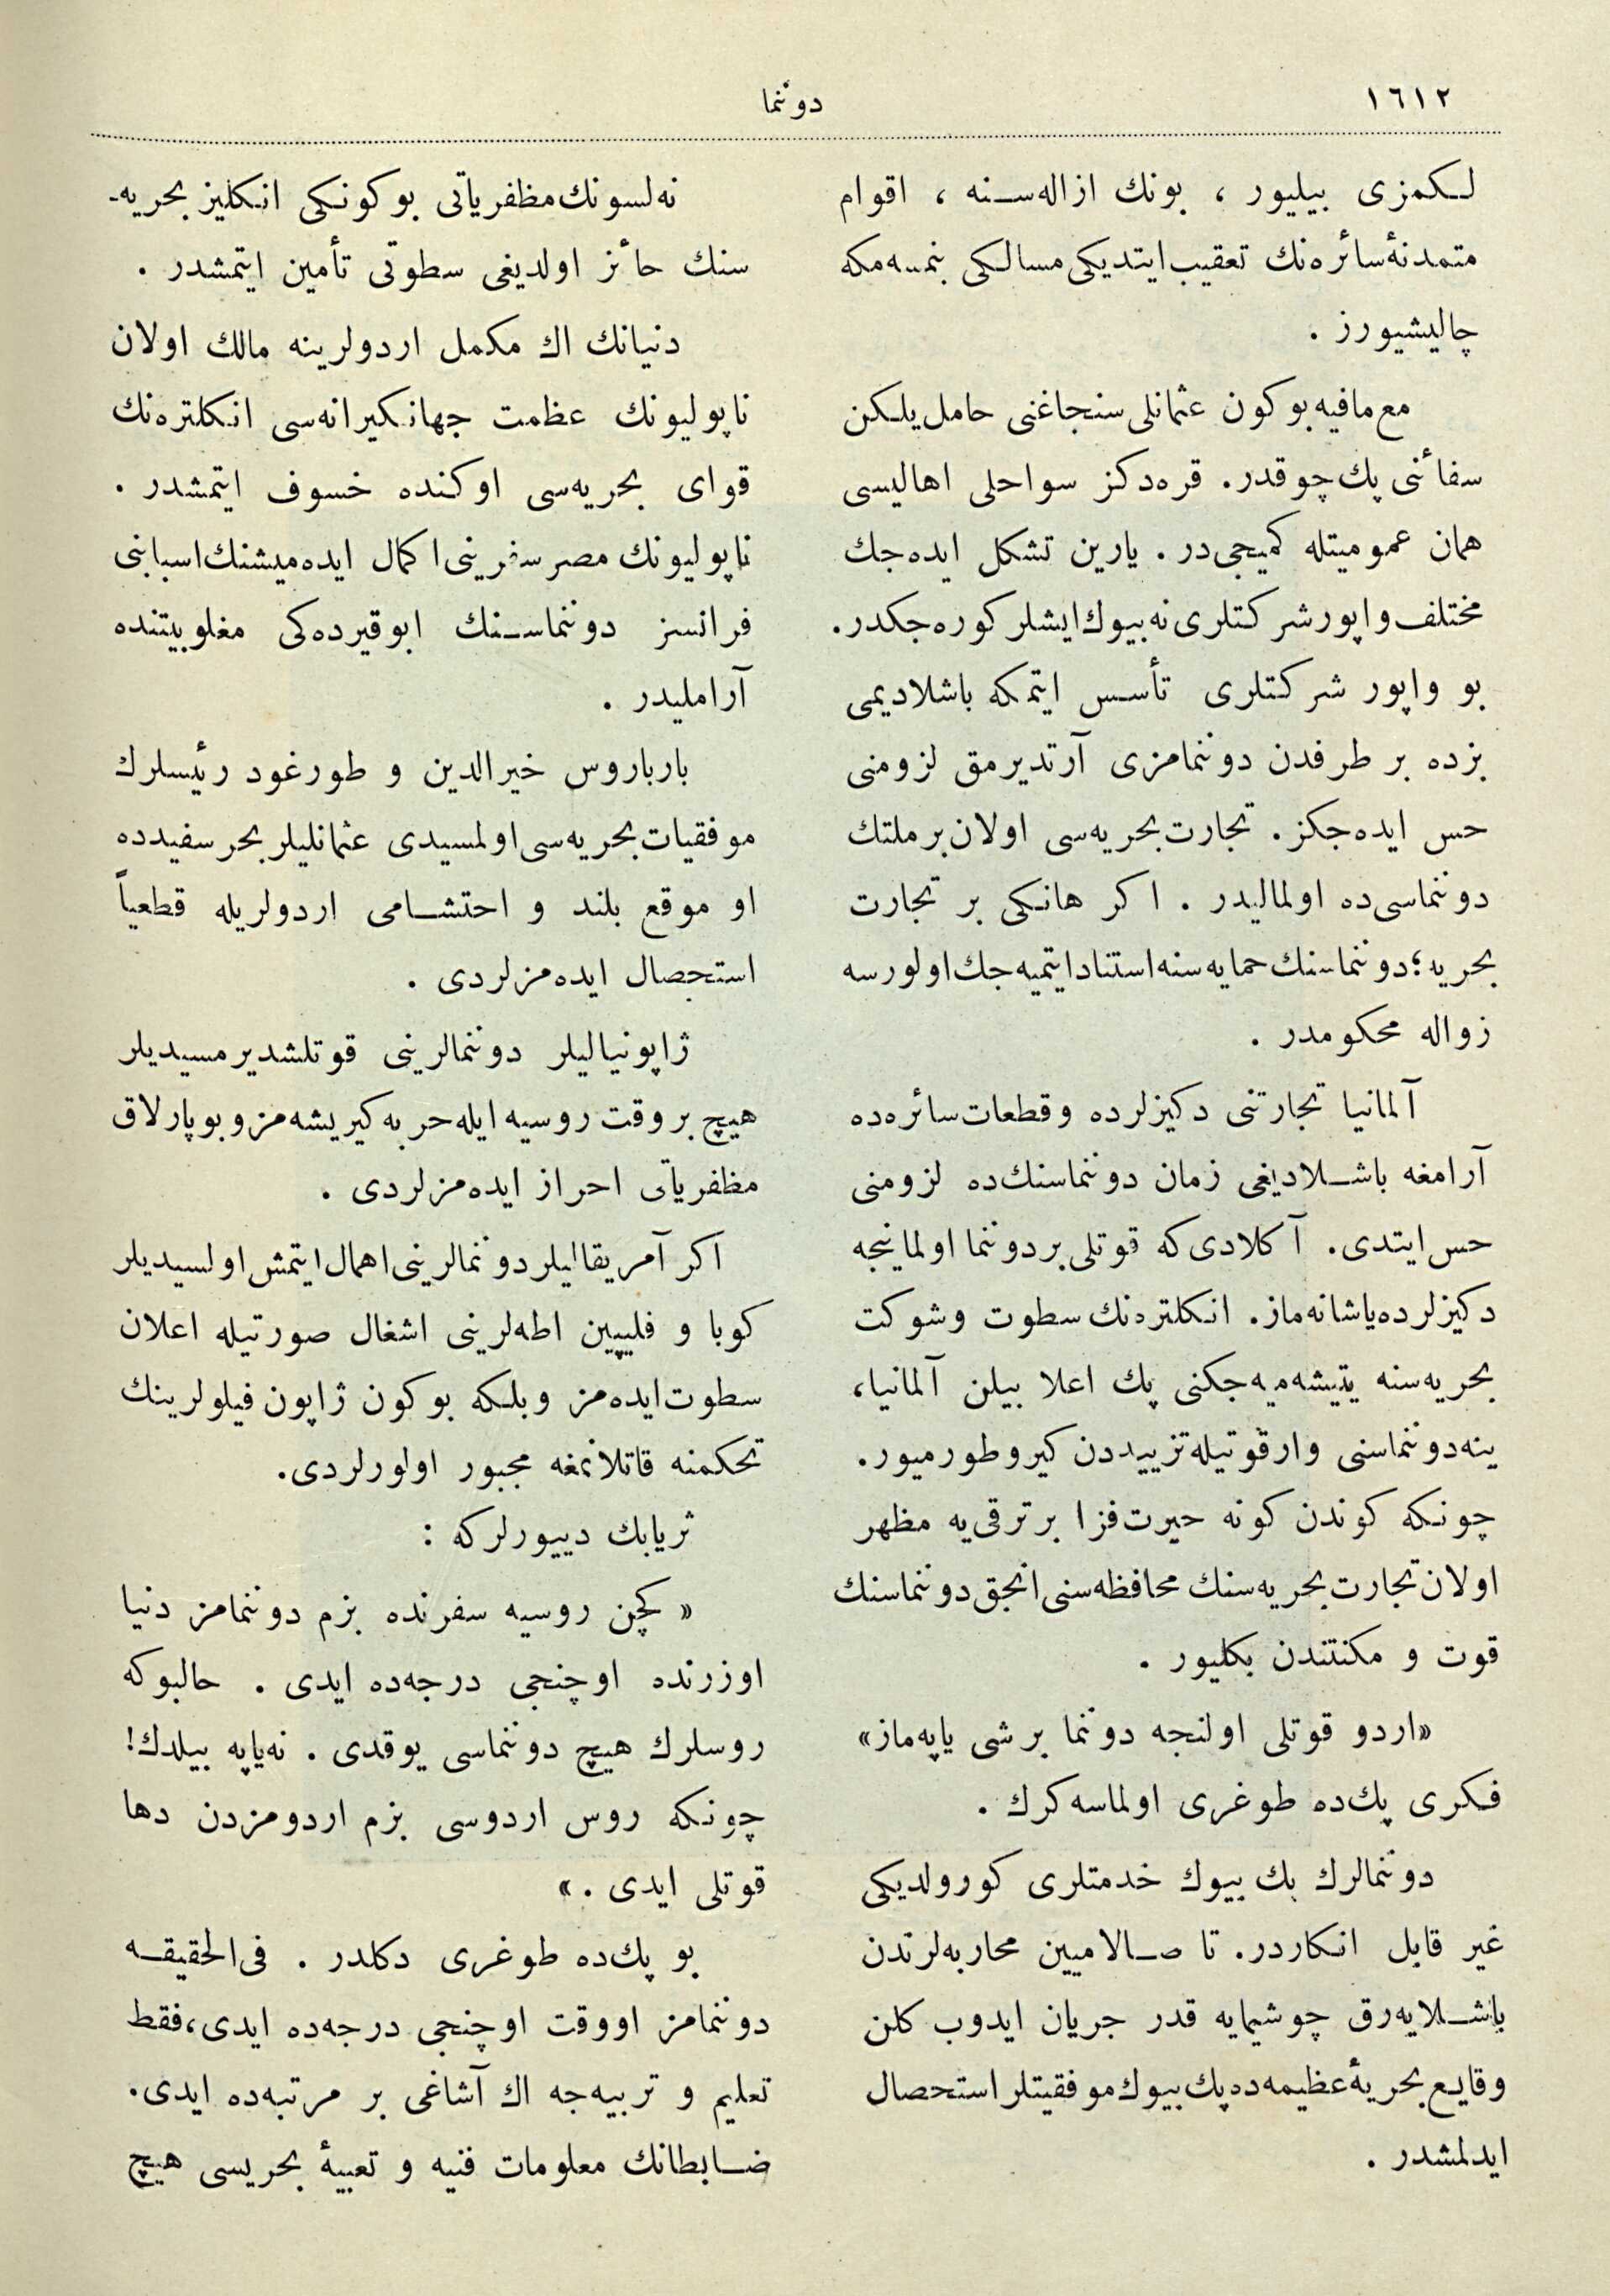 ١٦١٢
دوننما
لكمزى بيليور ، بونك ازاله‌سنه ، اقوام
متمدنهٔ سائره‌نك تعقيب ايتديكى مسالكى بنمسه‌مكه
چاليشيورز .
مع مافيه بوكون عثمانلى سنجاغنى حامل يلكن
سفائنى پك چوقدر. قره‌دكز سواحلى اهاليسى
همان عموميتله كميجى‌در . يارين تشكل ايده‌جك
مختلف واپور شركتلرى نه بيوك ايشلر كوره‌جكدر.
بو واپور شركتلرى تأسس ايتمكه باشلاديمى
بزده بر طرفدن دوننمامزى آرتديرمق لزومنى
حس ايده‌جكز . تجارت بحريه‌سى اولان بر ملتك
دوننماسى‌ده اولماليدر . اكر هانكى بر تجارت
بحريه ؛ دوننماسنك حمايه‌سنه استناد ايتميه‌جك اولورسه
زواله محكومدر .
آلمانيا تجارتنى دكيزلرده و قطعات سائره‌ده
آرامغه باشلاديغى زمان دوننماسنك‌ده لزومنى
حس ايتدى. آكلادى كه قوتلى بر دوننما اولماينجه
دكيزلرده ياشانه‌ماز. انكلتره‌نك سطوت وشوكت
بحريه‌سنه يتيشه‌ميه‌جكنى پك اعلا بيلن آلمانيا،
ينه دوننماسنى وار قوتيله تزييددن كيرو طورميور.
چونكه كوندن كونه حيرت‌فزا بر ترقى‌يه مظهر
اولان تجارت بحريه‌سنك محافظه‌سنى انجق دوننماسنك
قوت و مكنتندن بكليور .
«اردو قوتلى اولنجه دوننما بر شى ياپه‌ماز»
فكرى پك‌ده طوغرى اولماسه كرك .
دوننمالرك بك بيوك خدمتلرى كورولديكى
غير قابل انكاردر. تا صالاميين محاربه‌لرندن
باشلايه‌رق چوشيمايه قدر جريان ايدوب كلن
وقايع بحريهٔ عظيمه‌ده پك بيوك موفقيتلر استحصال
ايدلمشدر .
نه‌لسونك مظفرياتى بوكونكى انكليز بحريه-
سنك حائز اولديغى سطوتى تأمين ايتمشدر .
دنيانك اك مكمل اردولرينه مالك اولان
ناپوليونك عظمت جهانكيرانه‌سى انكلتره‌نك
قواى بحريه‌سى اوكنده خسوف ايتمشدر .
ناپوليونك مصر سفرينى اكمال ايده‌ميشنك اسبابنى
فرانسز دوننماسنك ابوقيرده‌كى مغلوبيتنده
آرامليدر .
بارباروس خيرالدين و طورغود رئيسلرك
موفقيات بحريه‌سى اولمسيدى عثمانليلر بحر سفيدده
او موقع بلند و احتشامى اردولريله قطعياً
استحصال ايده‌مزلردى .
ژاپونياليلر دوننمالرينى قوتلشديرمسيديلر
هيچ بر وقت روسيه ايله حربه كيريشه‌مز و بو پارلاق
مظفرياتى احراز ايده‌مزلردى .
اكر آمريقاليلر دوننمالرينى اهمال ايتمش اولسيديلر
كوبا و فليپين اطه‌لرينى اشغال صورتيله اعلان
سطوت ايده‌مز و بلكه بوكون ژاپون فيلولرينك
تحكمنه قاتلانمغه مجبور اولورلردى.
ثريابك دييورلركه :
« كچن روسيه سفرنده بزم دوننمامز دنيا
اوزرنده اوچنجى درجه‌ده ايدى . حالبوكه
روسلرك هيچ دوننماسى يوقدى . نه‌ياپه بيلدك!
چونكه روس اردوسى بزم اردومزدن دها
قوتلى ايدى . »
بو پك‌ده طوغرى دكلدر . فى‌الحقيقه
دوننمامز اووقت اوچنجى درجه‌ده ايدى، فقط
تعليم و تربيه‌جه اك آشاغى بر مرتبه‌ده ايدى.
ضابطانك معلومات فنيه و تعبيهٔ بحريسى هيچ